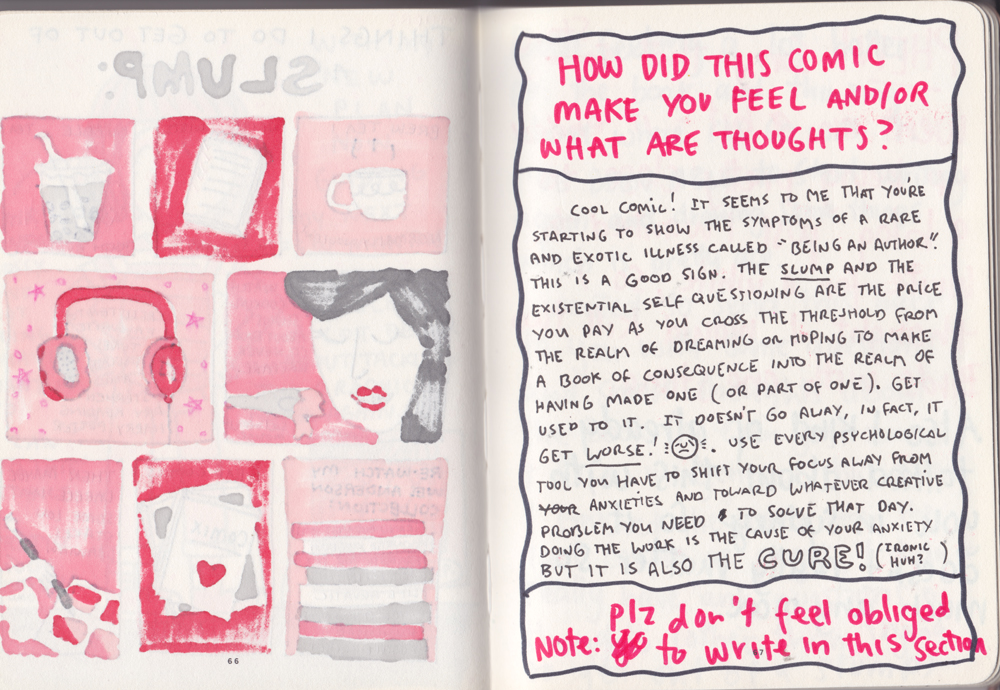 THINGS I DO TO GET OUT OF
SLUMP:
RE-WATCH MY
ANDERSON
COLLECTION?
66
HOW DID THIS COMIC
MAKE YOU FEEL AND/OR
WHAT ARE THOUGHTS?
COOL COMIC! IT SEEMS TO ME THAT YOU'RE
STARTING TO SHOW THE SYMPTOMS OF A RARE
AND EXOTIC ILLNESS CALLED "BEING AN AUTHOR".
THIS IS A GOOD SIGN. THE SLUMP AND THE
EXISTENTIAL SELF QUESTIONING ARE THE PRICE
YOU PAY AS YOU CROSS THE THRESHOLD FROM
THE REALM OF DREAMING OR HOPING TO MAKE
A BOOK OF CONSEQUENCE INTO THE REALM OF
HAVING MADE ONE (OR PART OF ONE). GET
USED TO IT. IT DOESN'T GO AWAY, IN FACT, IT
GET WORSE! USE EVERY PSYCHOLOGICAL
TOOL YOU HAVE TO SHIFT YOUR FOCUS AWAY FROM
YOUR ANXIETIES AND TOWARD WHATEVER CREATIVE
PROBLEM YOU NEED TO SOLVE THAT DAY.
DOING THE WORK IS THE CAUSE OF YOUR ANXIETY
BUT IT IS ALSO THE CURE! (IRONIC HUH?)
plz don't feel obliged
Note: to write in this section
67